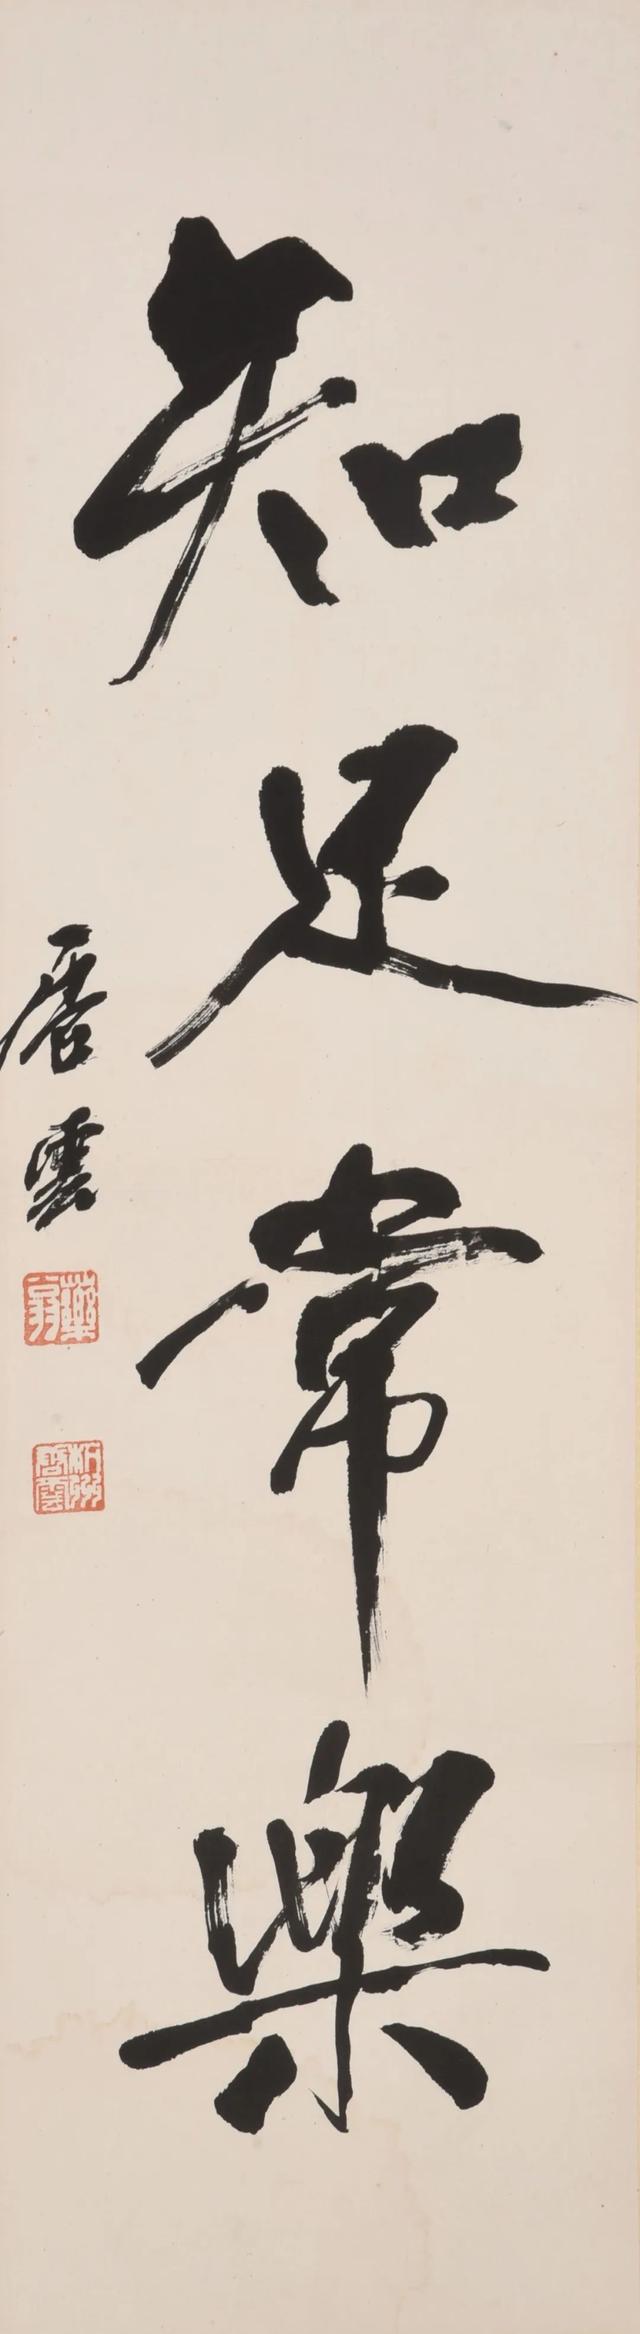 知足常樂
唐雲
藥翁
杭州唐雲